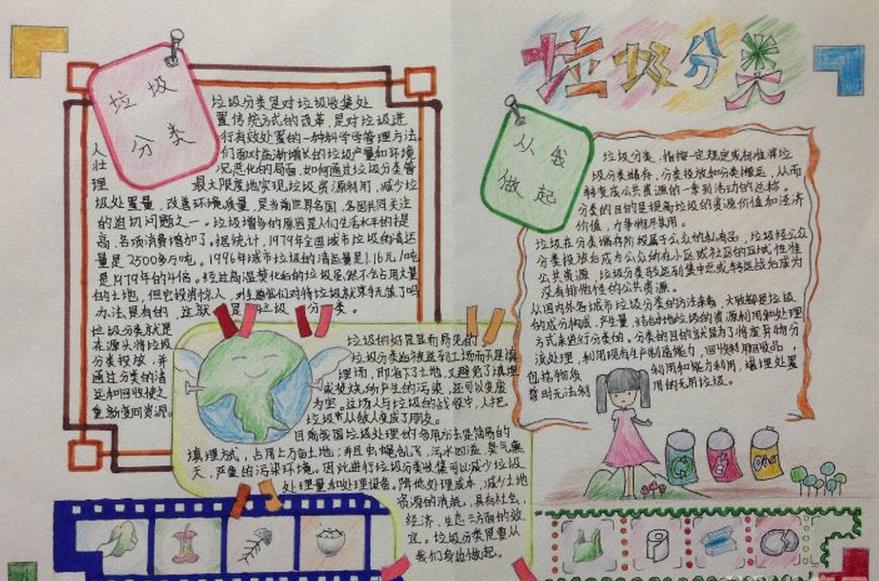 垃圾
分类
垃圾分类是对垃圾收集处
置传统方式的改革,是对垃圾进
行有效处置的一种科学管理方法.
人们面对日益增长的垃圾产量和环境
状况恶化的局面,如何通过垃圾分类管
理 最大限度地实现垃圾资源利用,减少垃
圾处置量,改善环境质量,是当前世界各国,各国共同关注
的迫切问题之一。垃圾增多的原因是人们生活水平的提
高,各项消费增加了。据统计,1979年全国城市垃圾的清运
量是2500多万吨。1996年城市垃圾的清运量是1.16元/吨
是1979年的4倍。经过高温焚化后的垃圾虽然不会占用大量
的土地,但它投资惊人,
办法是有的,这就是垃圾分类。
垃圾分类就是
在源头将垃圾
分类投放,并
通过分类的清
运和回收使之
重新变回资源。
垃圾的好处是显而易见的
垃圾分类后被送到工场而不是填
埋场,即省下了土地,又避免了填埋
或焚烧所产生的污染,还可以变废
为宝。这场人与垃圾的战役中,人把
垃圾从敌人变成了朋友。
目前我国垃圾处理的多用方法是简易的
填埋方式,占用上万亩土地;并且虫蝇乱飞,污水四溢,臭气熏
天,严重的污染环境。因此进行垃圾分类收集可以减少垃圾
处理量和处理设备,降低处理成本,减少土地
资源的消耗,具有社会,
经济,生态三方面的效
益。垃圾分类是要从
我们身边做起。
垃圾分类
从我
做起
垃圾分类,指按一定规定或标准将垃
圾分类储存,分类投放和分类搬运,从而
转变成公共资源的一系列活动的总称。
分类的目的是提高垃圾的资源价值和经济
价值,力争物尽其用。
垃圾在分类储存阶段属于公众的私有品,垃圾经公众
分类投放后成为公众所在小区或社区的区域性准
公共资源,垃圾分类转运到集中点或转运站后成为
没有排他性的公共资源。
从国内外各城市垃圾分类的方法来看,大致都是垃圾
的成分构成,产生量,结合本地垃圾的资源利用和处理
方式来进行分类的。分类的目的就是为了将废弃物分
流处理,利用现有生产制造能力,回收利用回收品,
包括物质利用和能力利用,填埋处置
暂时无法利用的无用垃圾。
Other